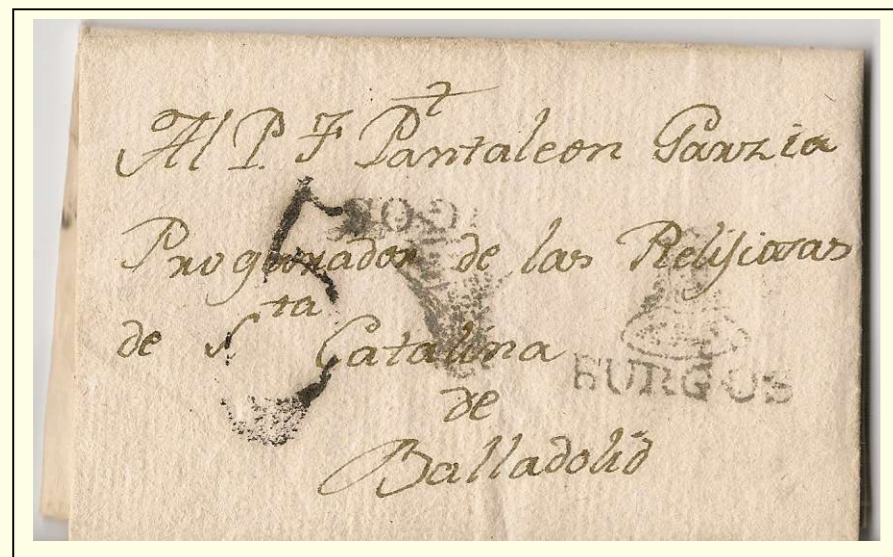 Al P. F Pantaleon Garzia
Progurador de las Relijiosas
de Sta Catalina
de
Balladolid
5
BURGOS